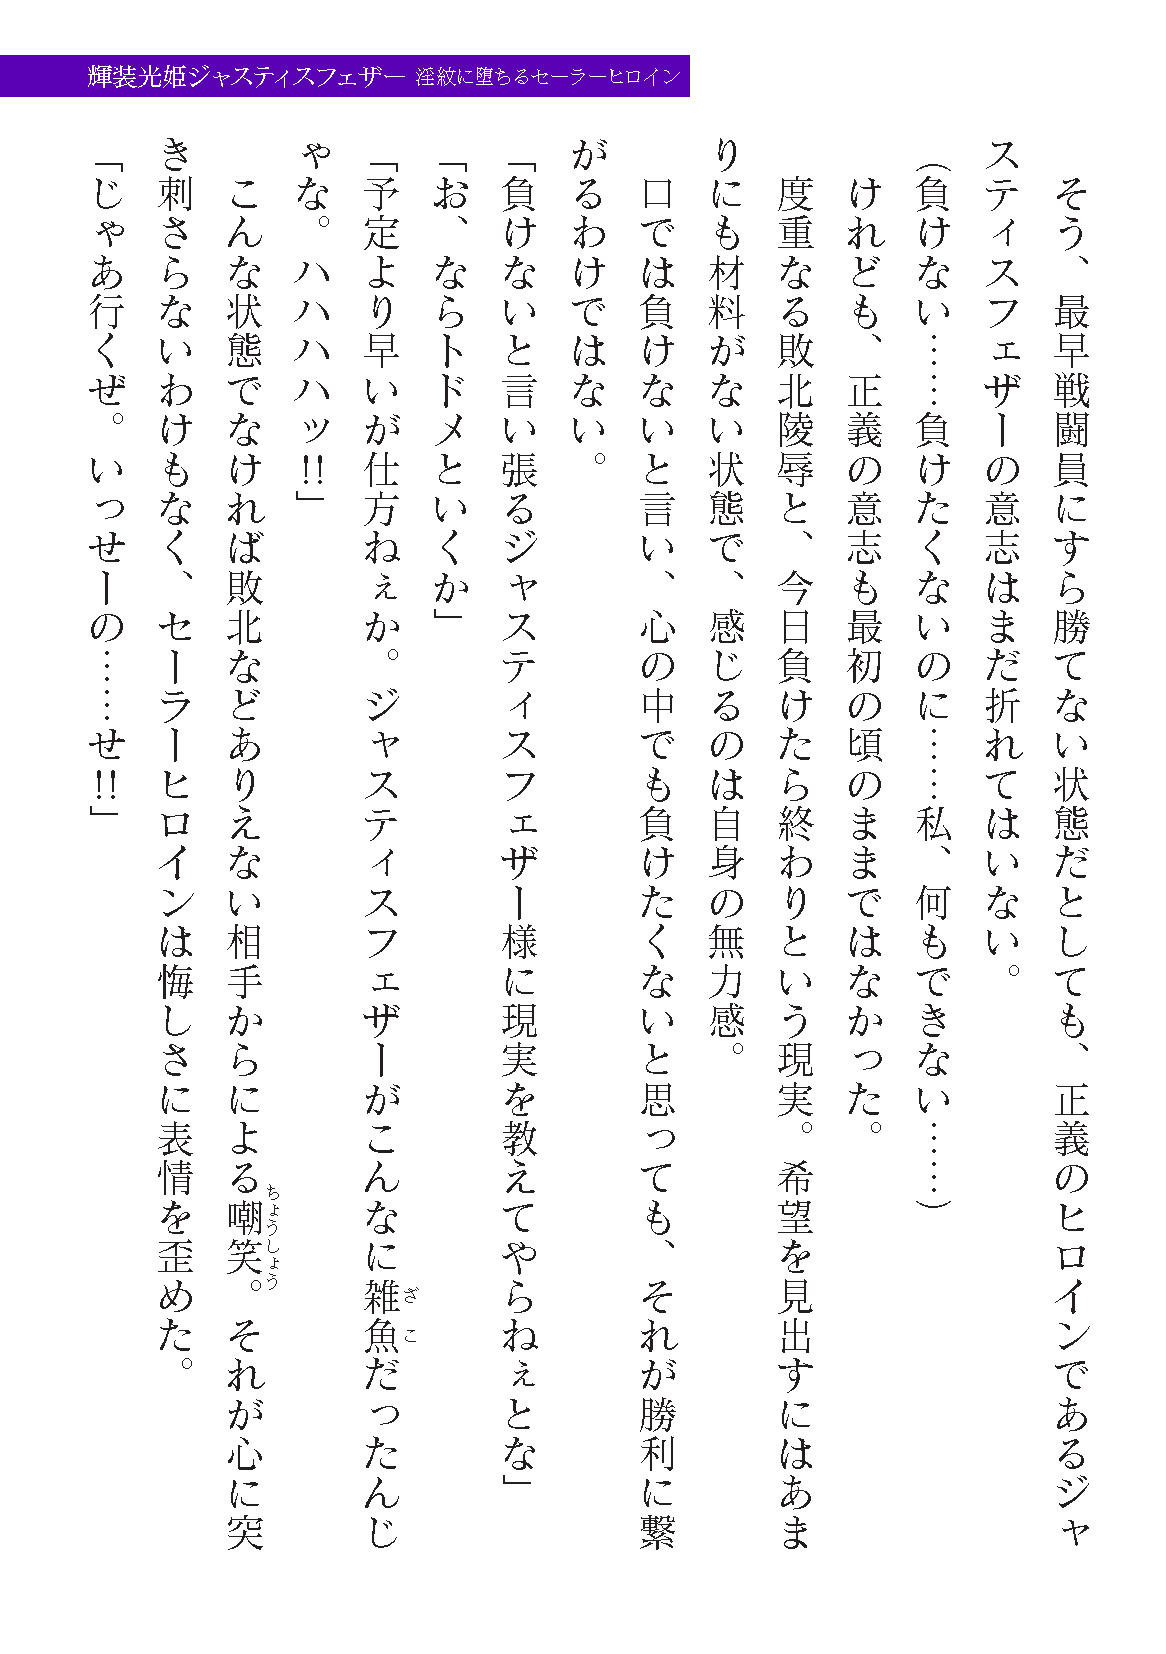 輝装光姫ジャスティスフェザー 淫紋に堕ちるセーラーヒロイン
そう、最早戦闘員にすら勝てない状態だとしても、正義のヒロインであるジャ
スティスフェザーの意志はまだ折れてはいない。
(負けない……負けたくないのに……私、何もできない……)
けれども、正義の意志も最初の頃のままではなかった。
度重なる敗北陵辱と、今日負けたら終わりという現実。希望を見出すにはあま
りにも材料がない状態で、感じるのは自身の無力感。
口では負けないと言い、心の中でも負けたくないと思っても、それが勝利に繋
がるわけではない。
「負けないと言い張るジャスティスフェザー様に現実を教えてやらねぇとな」
「お、ならトドメといくか」
「予定より早いが仕方ねぇか。ジャスティスフェザーがこんなに雑魚だったんじ
ざこ
ゃな。ハハハハッ!!」
こんな状態でなければ敗北などありえない相手からによる嘲笑。それが心に突
ちょうしょう
き刺さらないわけもなく、セーラーヒロインは悔しさに表情を歪めた。
「じゃあ行くぜ。いっせーの……せ!!」